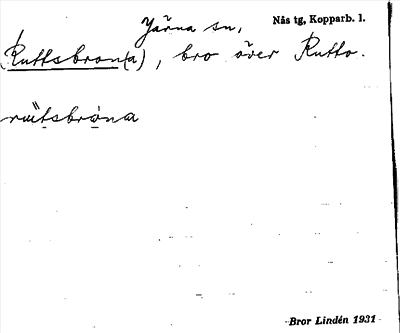 Järna sn,
Nås tg, Kopparb. l.
(Ruttsbron(a), bro över Rutto.
Bror Lindén 1931